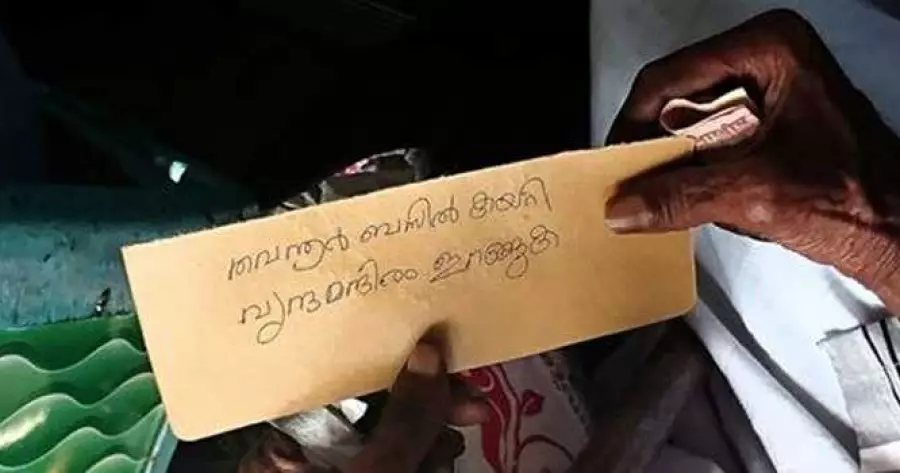 തവനൂർ ബസ്സിൽ കയറി
വൃദ്ധമന്ദിരം ഇറങ്ങുക